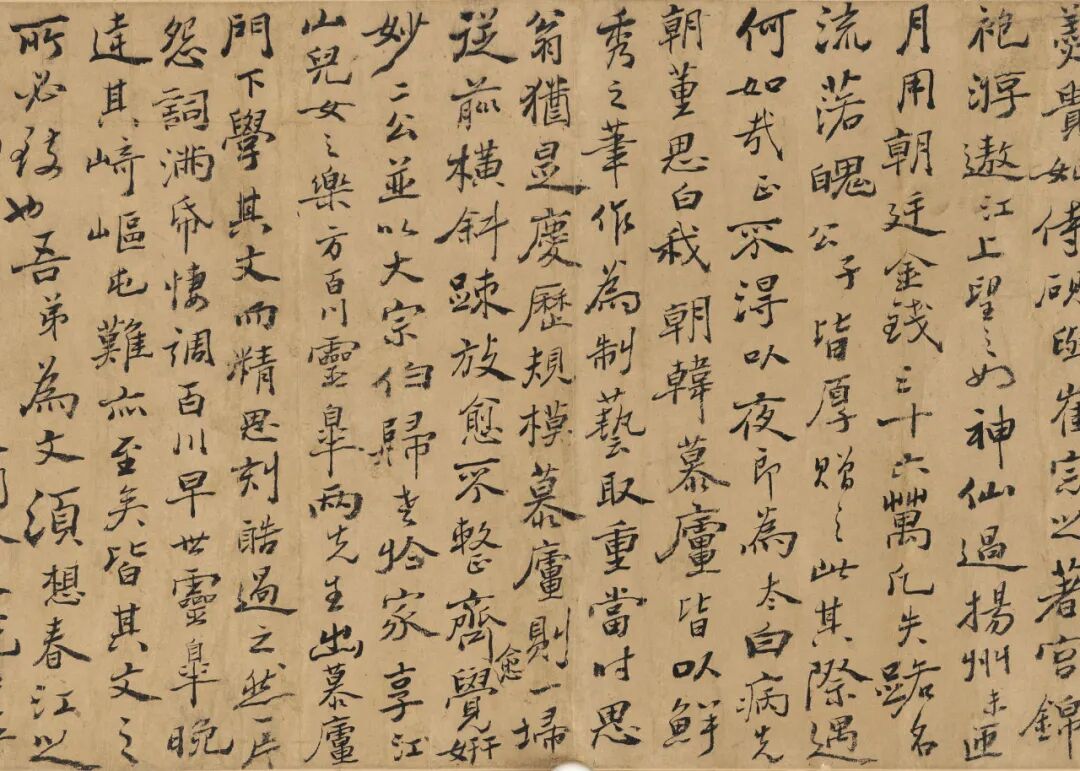 羹貴妃侍硯與崔宗之著宮錦
袍游遨江上望之如神仙過揚州未匝
月用朝廷金錢三十六萬凡失路名
流落魄公子皆厚贈之此其際遇
何如哉正不得以夜郎為太白病先
朝董思白我朝韓慕廬皆以鮮
秀之筆作為制藝取重當時思
翁猶是慶歷規模慕廬則一掃
從前橫斜踈放愈不整齊愈覺妍
妙二公並以大宗伯歸老於家享江
山兒女之樂方百川靈皐兩先生出慕廬
門下學其文而精思刻酷過之然一片
怨詞滿帋悽調百川早世靈皐晚
達其崎嶇屯難亦至矣皆其文之
所必致也吾弟為文須想春江之